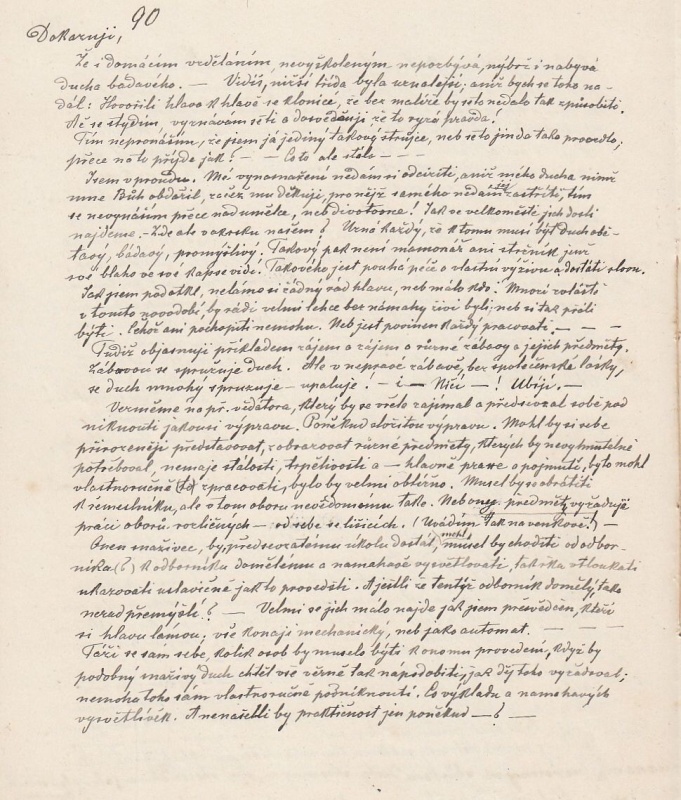 90
Dokazuji,
Že i domácím vzděláním, nevyškoleným nepozbývá, nýbrž i nabývá
ducha bádavého. — Vidíš, nižší třída byla uznalejší; aniž bych se toho na-
dál: Hovořili hlava k hlavě se klonice, že bez malíře by se to nedalo tak způsobiti.
Ač se stydím, vyznávám se ti a dosvědčuji že to ryzá pravda!
Tím nepronáším, že jsem já jediný takový strůjce, neb se to jinda tako provedlo,
přece na to přijde jak? — — Co to ale stálo — — —
Jsem v pravdu. Mé vynasnažení nedám si odciziti, aniž mého ducha nímž
mne Bůh obdařil, začež mu děkuji, pro nějž samého nedám zastříti, tím
se nevynáším přece nad umělce, neb divotvorce! Jak ve velkoměstě jich dosti
najdeme. — Zde ale v okrsku našem? Uzná každý, že k tomu musí být duch obě-
tavý, bádavý, promyšlivý. Takový pak není mamonář ani strčník jenž
své blaho ve své kapse vidí. Takového jest pouhá péče o vlastní výživu a dostáti slovu.
Jak jsem podotkl, nelámo si řádný rád hlavu, neb málo kdo! Mnozí zvláště
v tomto novodobí, by rádi velmi lehce bez námahy živi byli, neb si tak přáli
býti. Čehož ani pochopiti nemohu. Neb jest povinen každý pracovati. — — —
Tudíž objasnuji příkladem zájem o zájem o různé zábavy a jejich předměty.
Zábavou se spružuje duch. Ale v nepravé zábavě, bez společenské lásky,
se duch mnohý spružuje — upaluje! — i — Ničí — ! Ubíjí. —
Vezměme na př. vědátora, který by se vřelo zajímal a předsevzal sobě pod
niknouti jakousi výpravu. Poněkud složitou výpravu. Mohl by si sebe
přirozeněji představovat, zobrazovat různé předměty, kterých by nevyhnutelně
potřeboval, nemaje stálosti, trpělivosti a — hlavně praxe a pojmutí, by to mohl
vlastnoručně (to) zpracovati, bylo by velmi obtížno. Musel by se obrátiti
k řemeslníku, ale v tom oboru nevědomému také. Neb onen předmět vyžaduje
práci oborů rozličných — od sebe se lišících. (Uvádím jak na venkově!) —
Onen snaživec, by předsevzatému úkolu dostál, mohl musel by choditi od odbor-
níka (?) k odborníku domělému a namahavě vysvětlovati, takřka vtloukati
ukazovati ustavičně jak to provedsti. A jestli že tentýž odborník domělý, také
nerad přemýšlí? — Velmi se jich málo najde jak jsem přesvědčen, kteří
si hlavu lámou; vše konají mechanický, neb jako automat. — — —
Táži se sám sebe, kolik osob by muselo býti k onomu provedení, když by
podobný snaživý duch chtěl vše věrně tak nápodobiti, jak děj toho vyžadoval;
nemoha toho sám vlastnoručně podniknouti. Co výkladu a namahavých
vysvětlivěk. A nenašehli by praktičnost jen poněkud — ? —